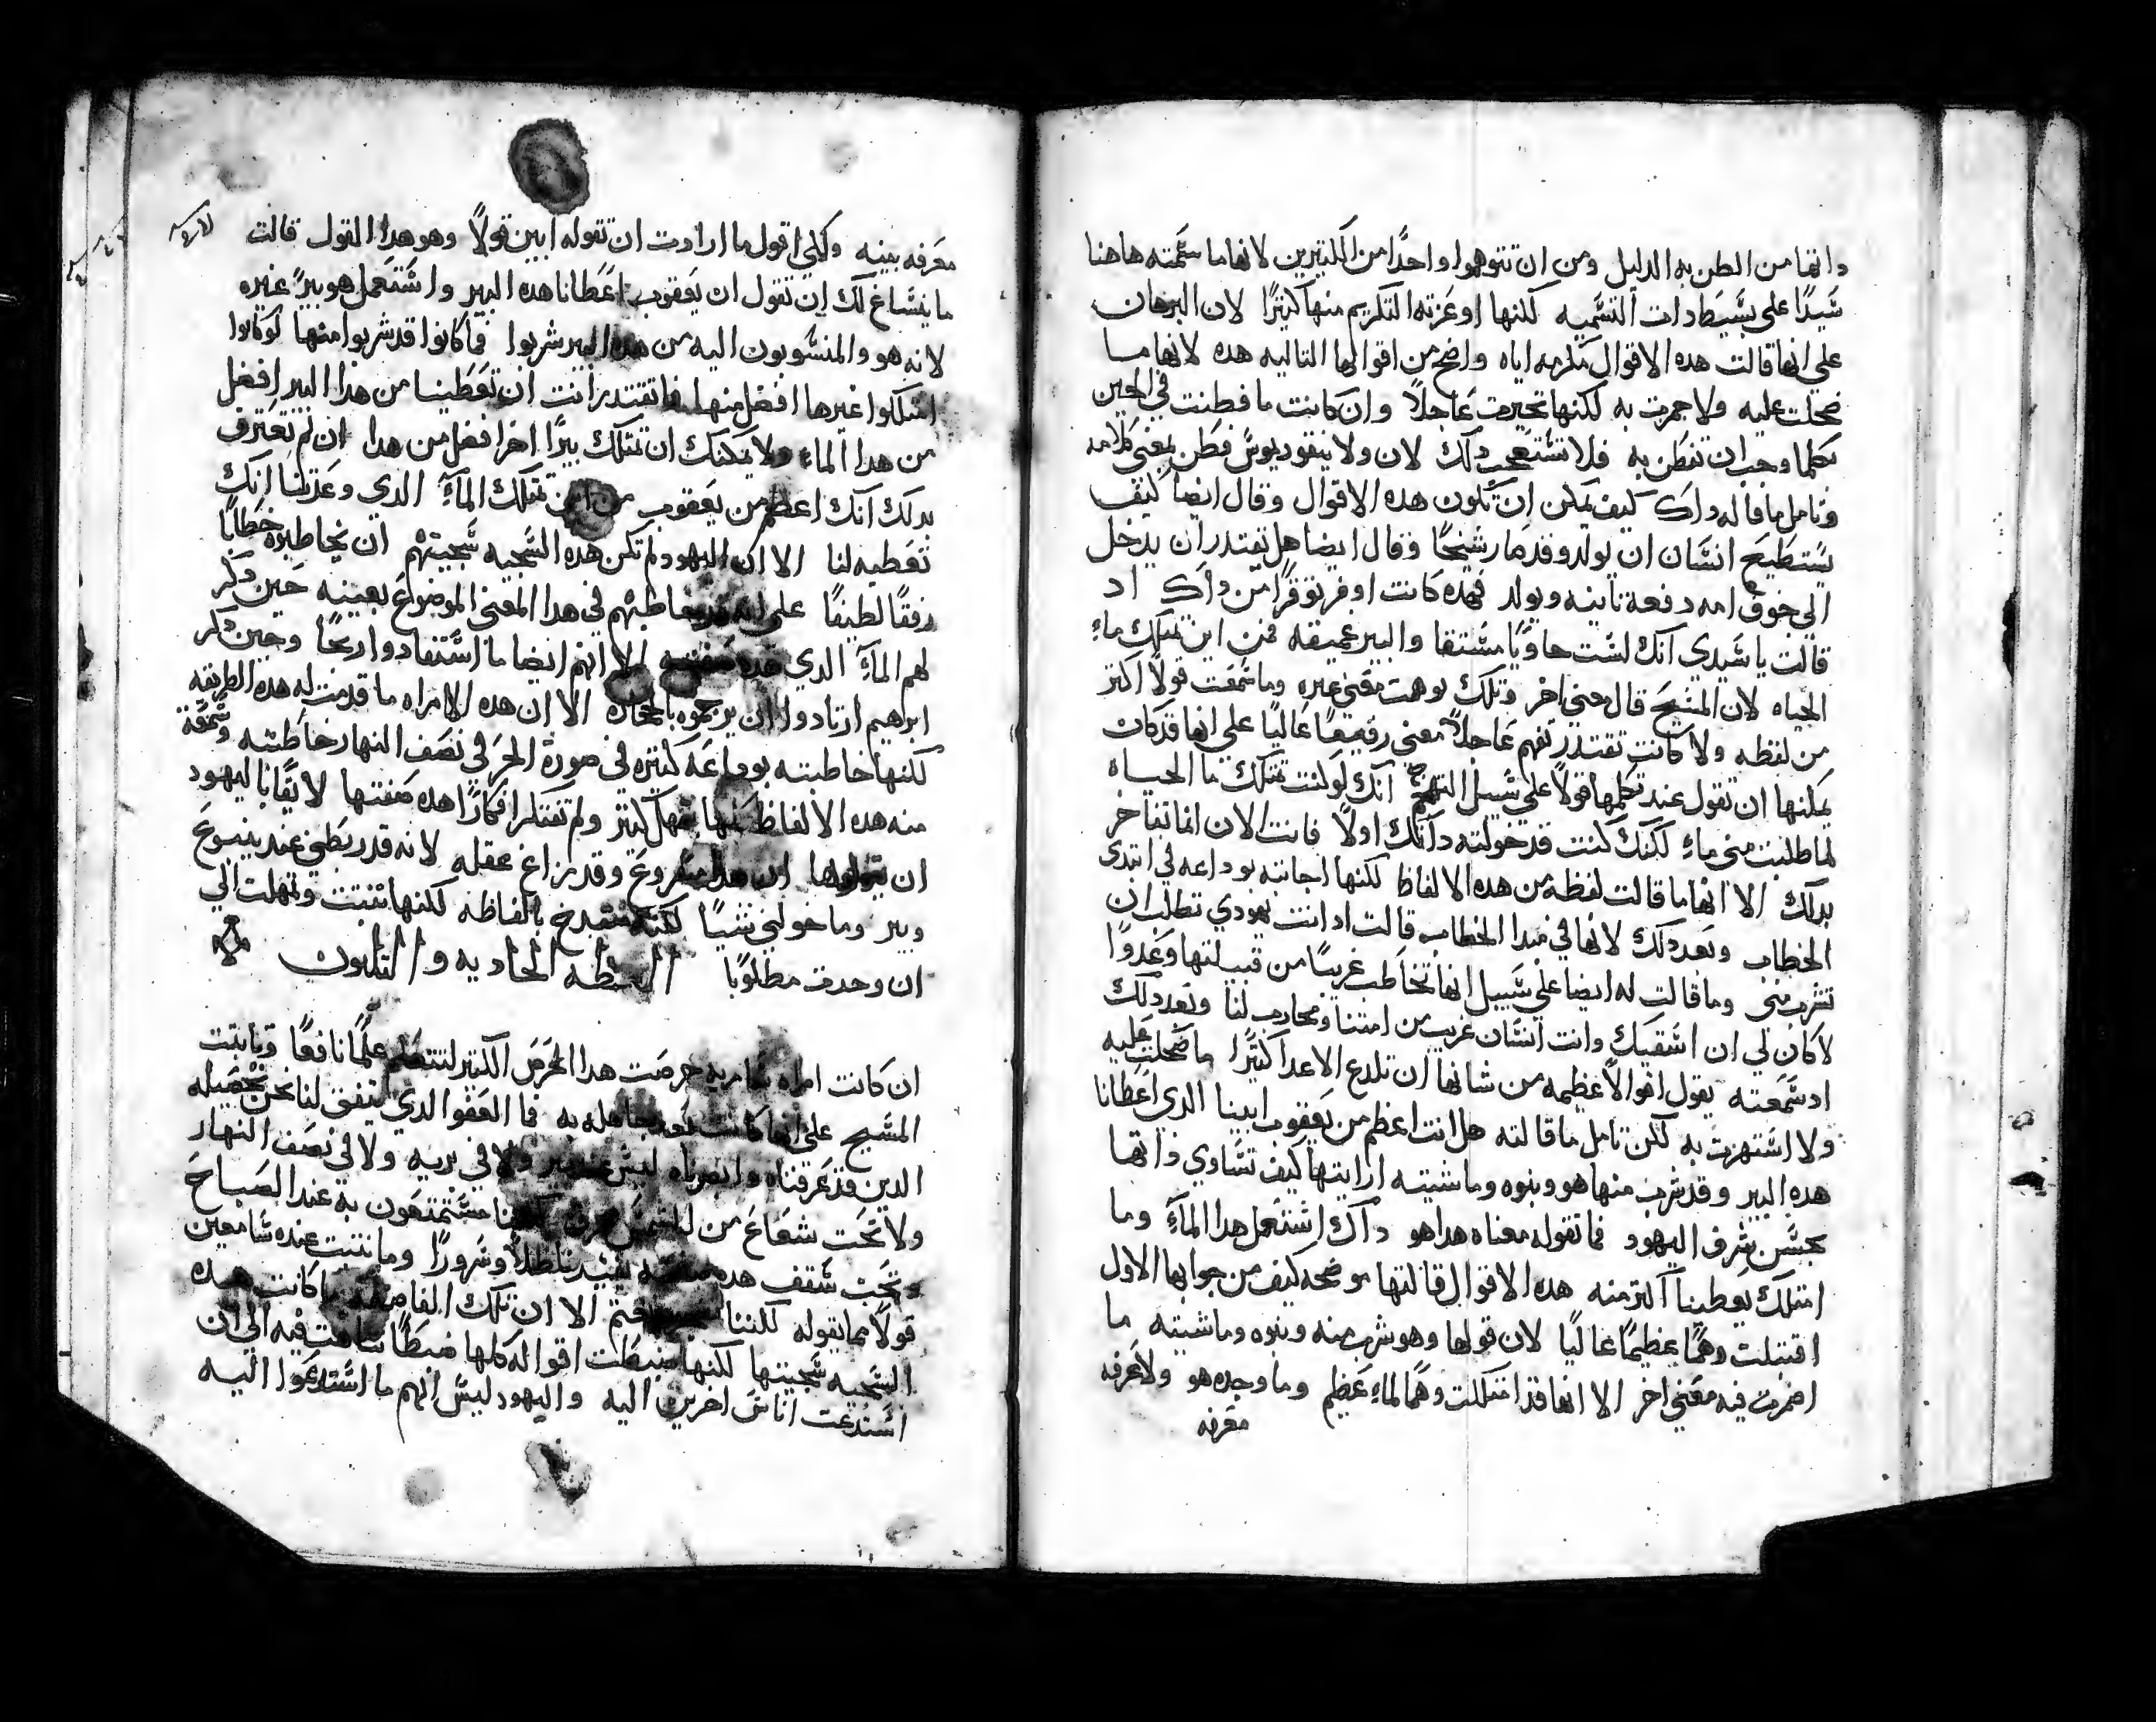 داتها من الظن به الدليل ومن ان تتوهوا واحدًا من الكتيرين لانها ما سمته هاهنا
سيدًا على بسيطادات التسميه لكنها اوعزته التكريم منها كتيرًا لان البرهان
على انها قالت هده الاقوال مكرمه اياه واضح من اقوالها التاليه هده لانها ما
ضحكت عليه ولا جمرت به لكنها تحيرت عاجلاً وان كانت ما فطنت في الحين
بكلما وجب ان تفطن به فلا تستعجب دلك لان ولا نيقوديوس فطن بمعنى كلامه
وتامل ما قاله داك كيف يمكن ان تكون هده الاقوال وقال ايضا كيف
يستطيع انسان ان يولد وقد صار شيخًا وقال ايضا هل يقتدر ان يدخل
الى جوف امه دفعة تانيه ويولد فهده كانت اوفر توقرًا من داك اد
قالت يا سيدي انك لست حاويًا مستقا والبير عميقه فمن اين تملك ماء
الحياه لان المسيح قال معنى اخر وتلك توهمت معنى غيره وما سمعت قولاً اكتر
من لفظه ولا كانت تقتدر تفهم عاجلاً معنى رفيعًا عاليًا على انها قد كان
يمكنها ان تقول عند تكلمها قولاً على سبيل التهجم انك لو كنت تمتلك ما الحياه
لما طلبت مني ماء لكنك كنت قد خولته داتك اولاً فانت الان انما تفاخر
بدلك الا انها ما قالت لفظة من هده الالفاظ لكنها اجابته بوداعه في ابتدى
الخطاب وبعد دلك لانها في مبدا الخطاب قالت اد انت يهودي تطلب ان
تشرب مني وما قالت له ايضا على سبيل انها تخاطب غريبًا من قبيلتها وعدوًا
لا كان لي ان اسقيك وانت انسان غريب من امتنا ومحارب لنا وبعد دلك
اد سمعته يقول اقوالاً عظيمه من شانها ان تلدع الاعدا كتيرًا ما ضحكت عليه
ولا استهزت به لكن تامل ما قالته هل انت اعظم من يعقوب ابينا الدي اعطانا
هده البير وقد شرب منها هو وبنوه وماشيته ارايتها كيف تساوي داتها
بجنس شرف اليهود فما تقوله معناه هدا هو داك استعمل هدا المآء وما
امتلك يعطينا اكتر منه هده الاقوال قالتها موضحه كيف من جوابها الاول
اقتبلت وهمًا عظيمًا عاليًا لان قولها وهو شرب منه وبنوه وماشيته ما
اضمرت فيه معنى اخر الا انها قد امتلكت وهما لماء عظيم وما وجده هو ولا عرفه
معرفه
معرفه بينه ولكني اقول ما ارادت ان تقوله ابين قولاً وهو هدا القول قالت
ما ينساغ لك ان تقول ان يعقوب اعطانا هده البير واستعمل هو بيرًا غيره
لانه هو والمنسوبون اليه من هده البير شربوا فما كانوا قد شربوا منها لو كانوا
امتلكوا غيرها افضل منها فاتقتدر انت ان تعطينا من هدا البير افضل
من هدا الماء ولا يمكنك ان تمتلك بيرًا اخر افضل من هدا ان لم تعترف
بدلك انك اعظم من يعقوب من اين تمتلك المآء الدي وعدتنا انك
تعطيه لنا الا ان اليهود لم تكن هده السجيه سجيتهم ان يخاطبوه خطابًا
رفقًا لطيفًا على انه قد خاطبهم في هدا المعنى الموضوع بعينه حين دكر
لهم المآء الدي هده صفته الا انهم ايضا ما استفادوا ربحًا وحين دكر
ابراهيم ارتادوا ان يرجموه بالحجاره الا ان هده الامراه ما قدمت له هده الطريقه
لكنها خاطبته بوداعه كتيره في صورة الحر في نصف النهار خاطبته وسمعة
منه هده الالفاظ كلها بتمهل كتير ولم تفتكر افكارًا هده صفتها لايقًا باليهود
ان يقولوها ان هدا مصروع وقد زاغ عقله لانه قد ربطني عند ينبوع
وبير وما خولني شيًا لكنه متبدخ بالفاظه لكنها تتبتت وتمهلت الى
ان وجدت مطلوبًا العظه الحاديه والتلتون
ان كانت امراه سامريه حرصت هدا الحرص الكتير لتتعلم علمًا نافعًا وتابتت
المسيح على انها كانت بعد جاهله به فما العفو الدي يتفق لنا نحن تحصيله
الدين قد عرفناه وابصرناه ليس عند بير ولا في بريه ولا في نصف النهار
ولا تحت شعاع من الشمس لكننا متمتعون به عند الصباح
وتحت سقف هده صفته يفيدنا ظلاً وسرورًا وما نتبت عنده سامعين
قولاً مما يقوله لكننا الا ان تلك الفاضله ما كانت هده
السجيه سجيتها لكنها ضبطت اقواله كلها ضبطًا تناهت فيه الى ان
استدعت اناس اخرين اليه واليهود ليس انهم ما استدعوا اليه